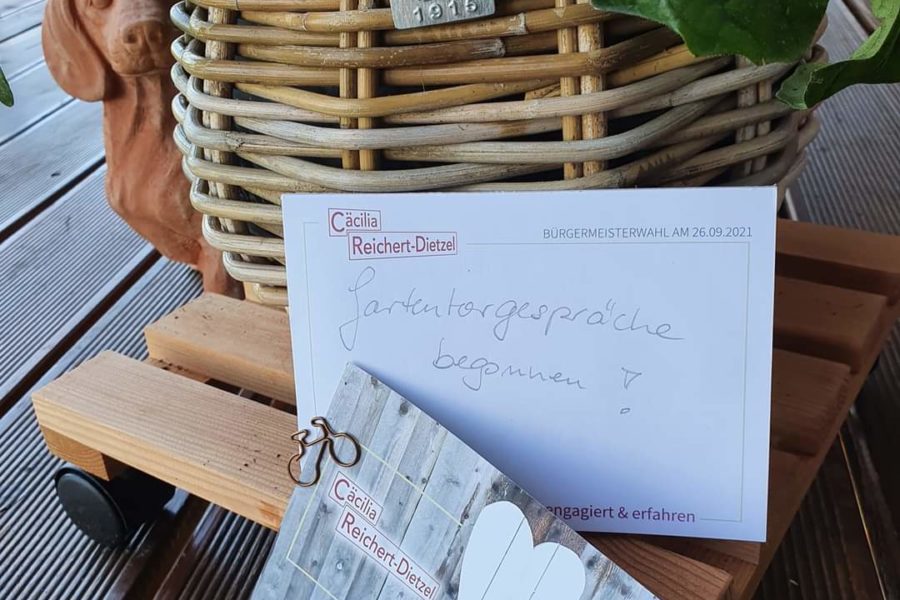 1915
Cäcilia
Reichert-Dietzel
BÜRGERMEISTERWAHL AM 26.09.2021
Gartentorgespräche
begonnen !
engagiert & erfahren
Cäcilia
Reichert-Dietzel